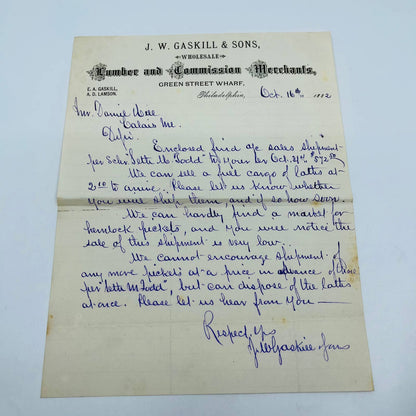 J. W. GASKILL & SONS,
WHOLESALE
Lumber and Commission Merchants,
GREEN STREET WHARF,
E. A. GASKILL,
A. D. LAMSON.
Philadelphia, Oct. 16th 1882
Mr Daniel Hill
Calais Me.
D/Sir
Enclosed find a/c sales shipment
per Schr. "Lette M Todd" to your
We can sell a full cargo of laths at
2 10 to arrive. Please let us know whether
you will ship them, and if so how soon.
We can hardly find a market for
hemlock pickets, and you will notice the
sale of this shipment is very low.
We cannot encourage shipment of
any more pickets at a price in advance of those
per "Lette M Todd", but can dispose of the laths
at once. Please let us hear from you —
Respect. yrs
J. W Gaskill & Sons